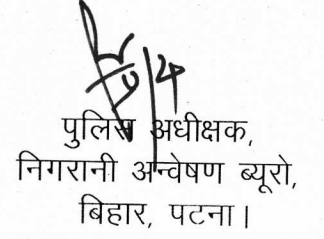 पुलिस अधीक्षक,
निगरानी अन्वेषण ब्यूरो,
बिहार, पटना।